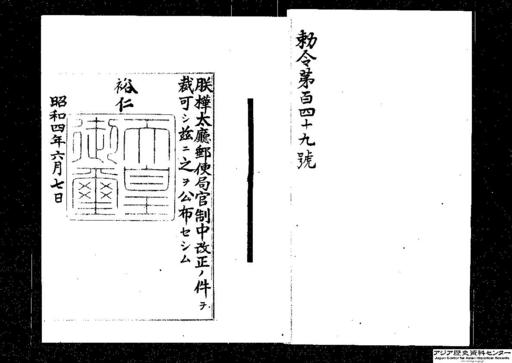 勅令第百四十九號
朕樺太廳郵便局官制中改正ノ件ヲ
裁可シ茲ニ之ヲ公布セシム
裕仁
天皇御璽
昭和四年六月七日
アジア歴史資料センター
Japan Center for Asian Historical Records